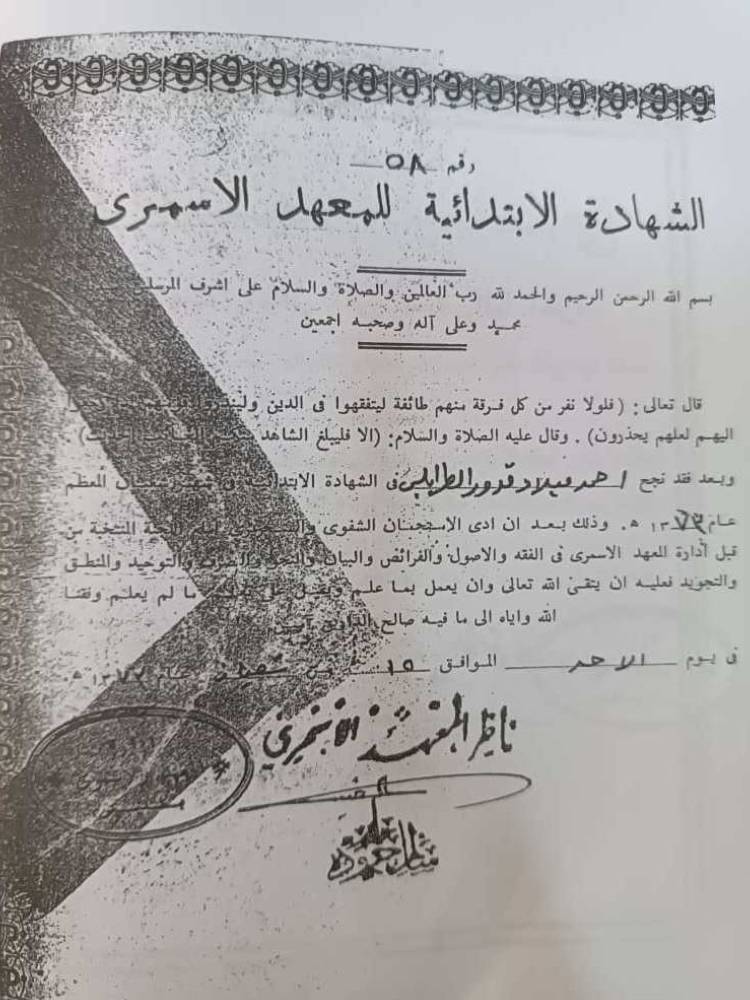 رقم ٥٨
الشهادة الابتدائية للمعهد الاسمرى
بسم الله الرحمن الرحيم والحمد لله رب العالمين والصلاة والسلام على اشرف المرسلين
محمد وعلى آله وصحبه اجمعين
قال تعالى : ( فلولا نفر من كل فرقة منهم طائفة ليتفقهوا فى الدين
اليهم لعلهم يحذرون ) . وقال عليه الصلاة والسلام : ( الا فليبلغ الشاهد
وبعد فقد نجح احمد ميلاد قدور الطرابلسي فى الشهادة الابتدائية فى شهر شعبان المعظم
عام ١٣ هـ . وذلك بعد ان ادى الامتحان الشفوى اللجنة المنتخبة من
قبل أدارة المعهد الاسمرى فى الفقه والاصول والفرائض والبيان والنحو والصرف والتوحيد والمنطق
والتجويد فعليه ان يتقى الله تعالى وان يعمل بما علم ما لم يعلم وفقنا
الله واياه الى ما فيه صالح الدارين
فى يوم الاحد الموافق ١٥ من عام ١٣ هـ
ناظر المعهد الاسمري